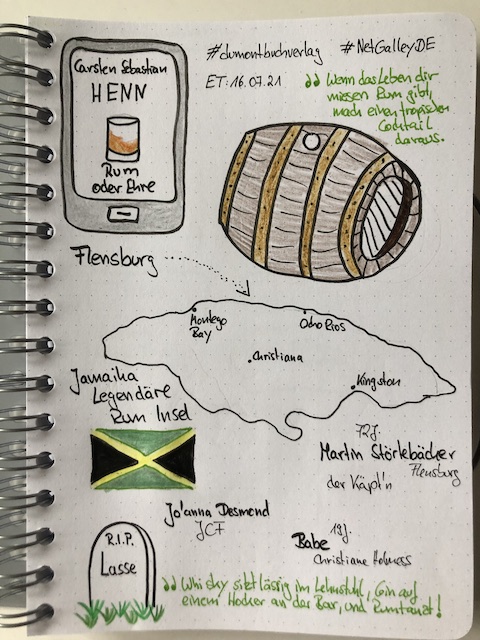 #dumontbuchverlag #NetGalleyDE
ET: 16.07.21
Carsten Sebastian
HENN
Rum
oder Ehre
Wenn das Leben dir
miesen Rum gibt,
mach einen tropischen
Cocktail
daraus.
Flensburg
Montego
Bay
Ocho Rios
Christiana
Kingston
Jamaika
Legendäre
Rum Insel
72J.
Martin Störtebäcker
Flensburg
der Käpt'n
Jo'anna Desmond
JCF
19J.
Babe
Christiane Holness
R.I.P.
Lasse
Whisky sitzt lässig im Lehnstuhl, Gin auf
einem Hocker an der Bar, und Rum tanzt!